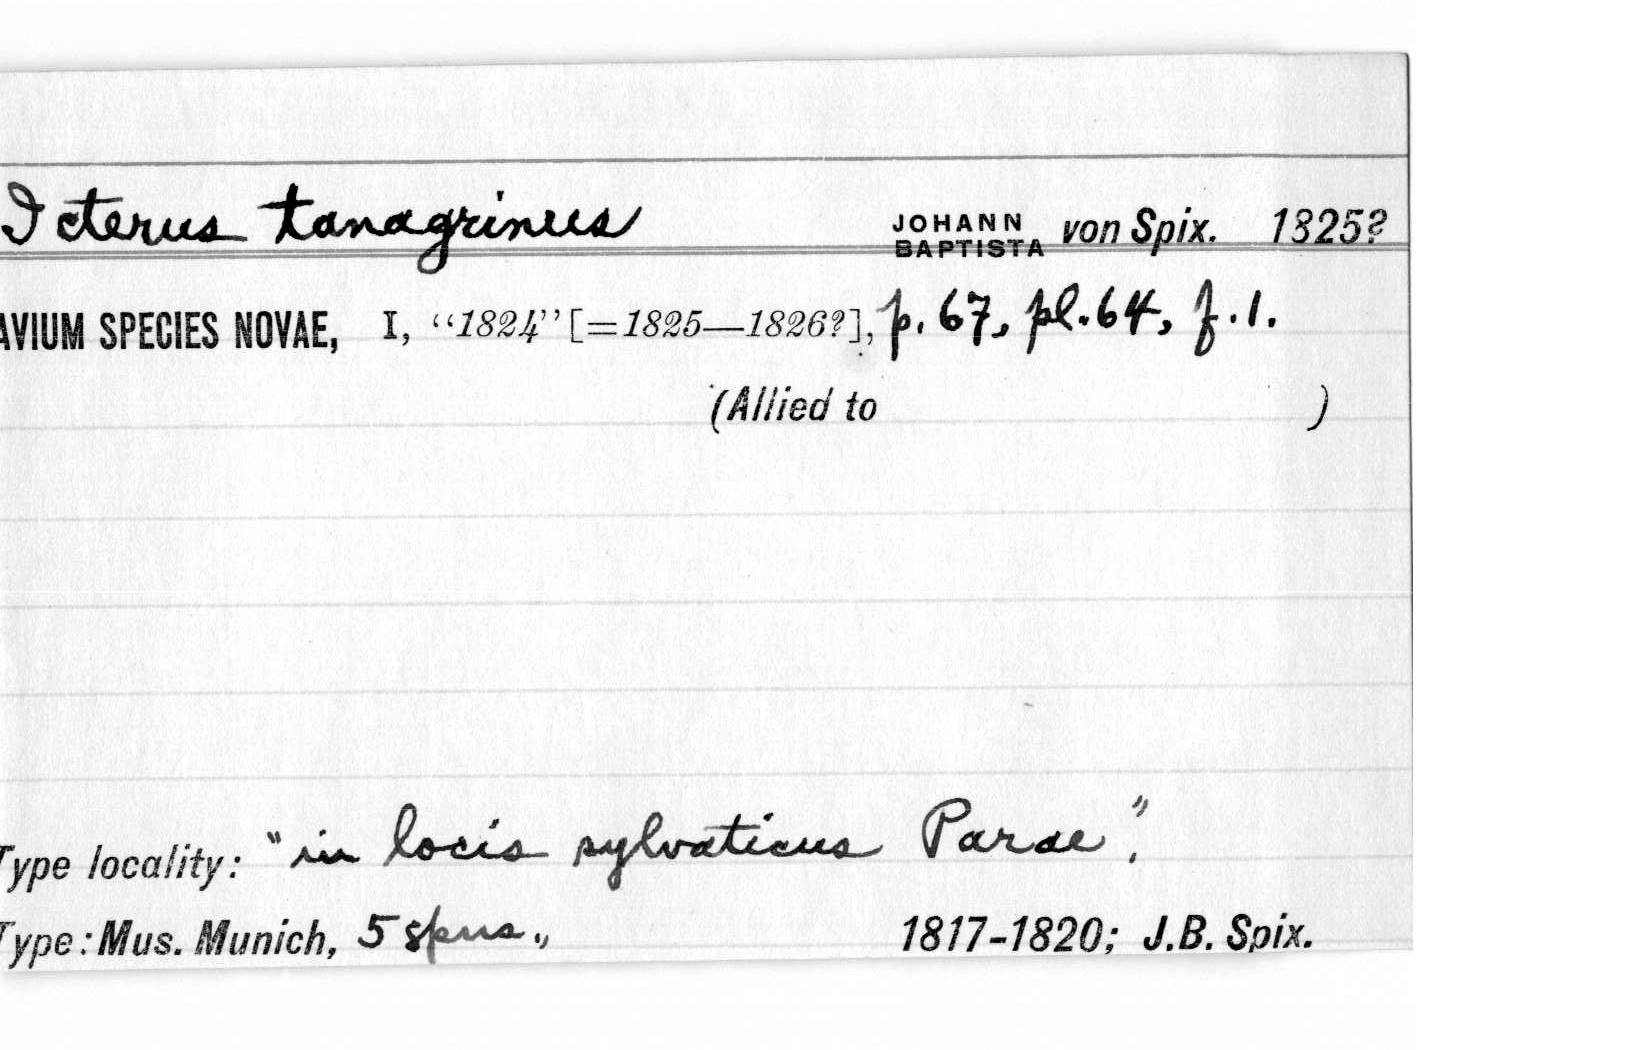 Icterus tanagrinus JOHANN BAPTISTA von Spix. 1825?
AVIUM SPECIES NOVAE, I, “1824” [=1825—1826?], p. 67, pl. 64, f. 1.
(Allied to )
Type locality: "in locis sylvaticus Parae".
Type: Mus. Munich, 5 spms., 1817-1820; J.B. Spix.